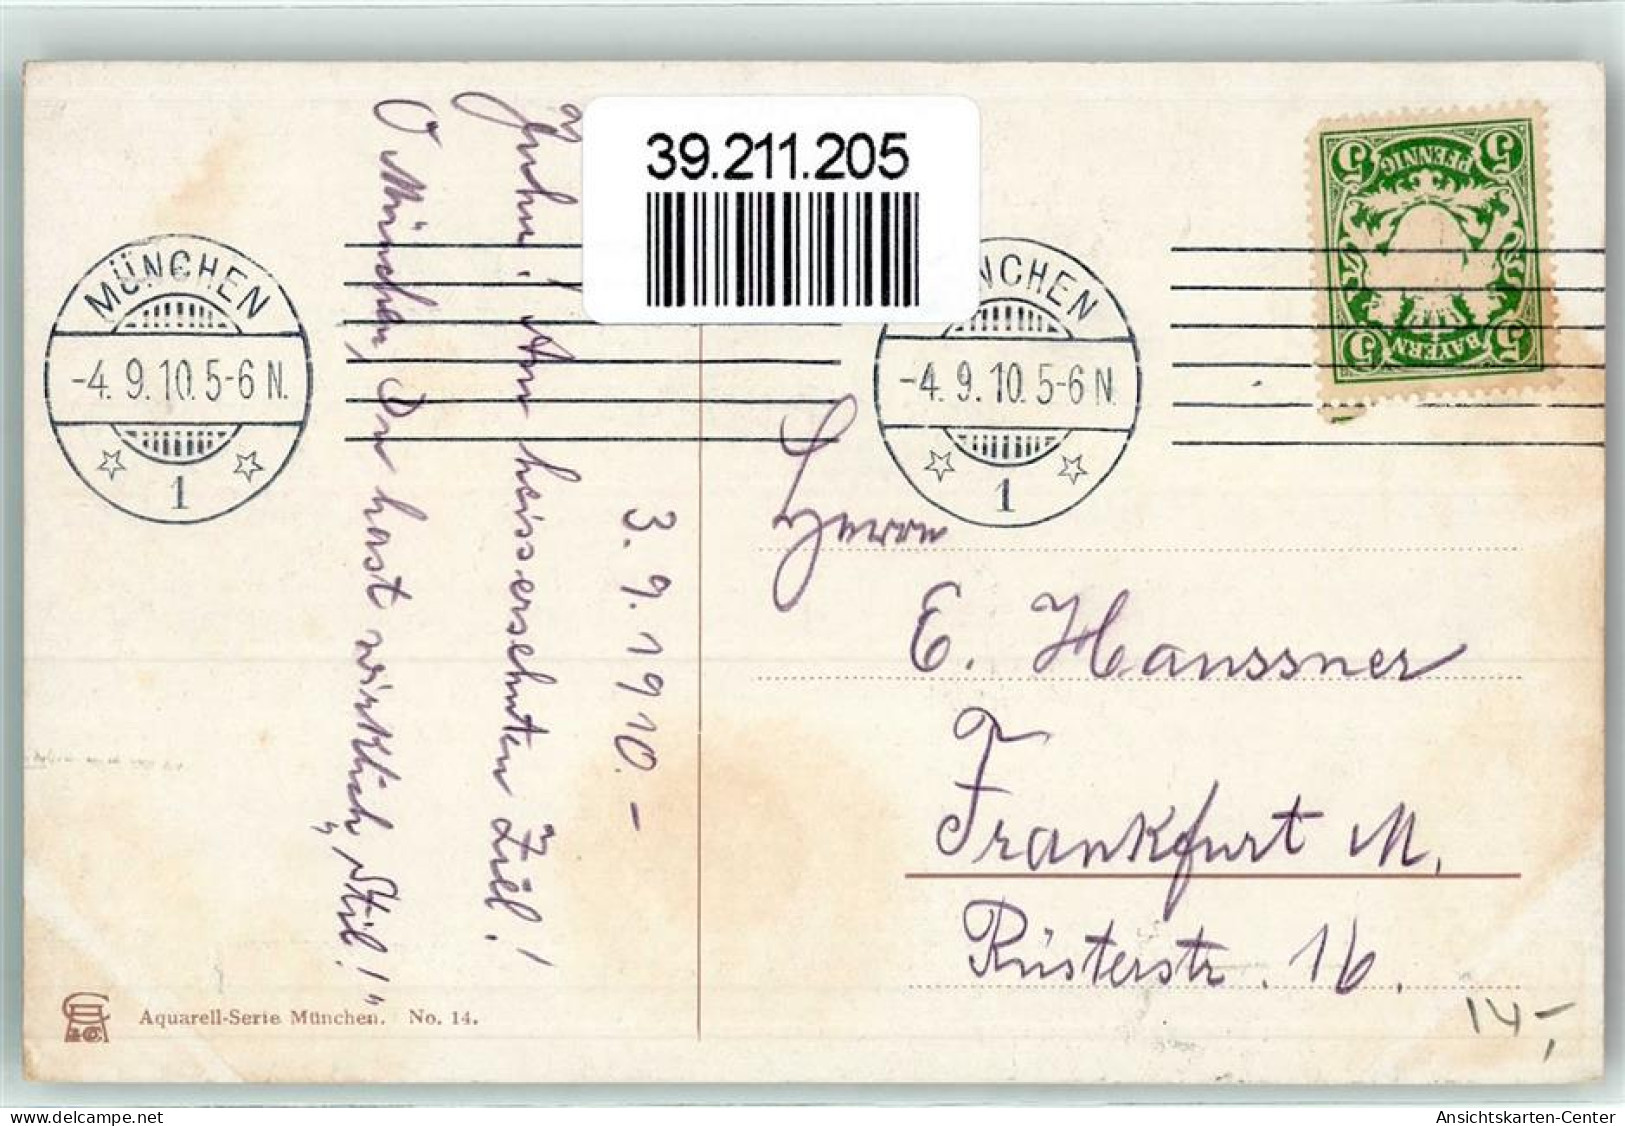 39.211.205
5 5
PFENNIG
BAYERN
5 5
MÜNCHEN
-4.9.10.5-6 N.
1
NCHEN
-4.9.10.5-6 N.
1
3.9.1910.-
Juhu! Am heissersehnten Ziel!
O München, Du hast wirklich „Stil!"
Herrn
E. Hanssner
Frankfurt M.
Rüsterstr. 16.
14,-
Aquarell-Serie München. No. 14.
delcampe.net
Ansichtskarten-Center